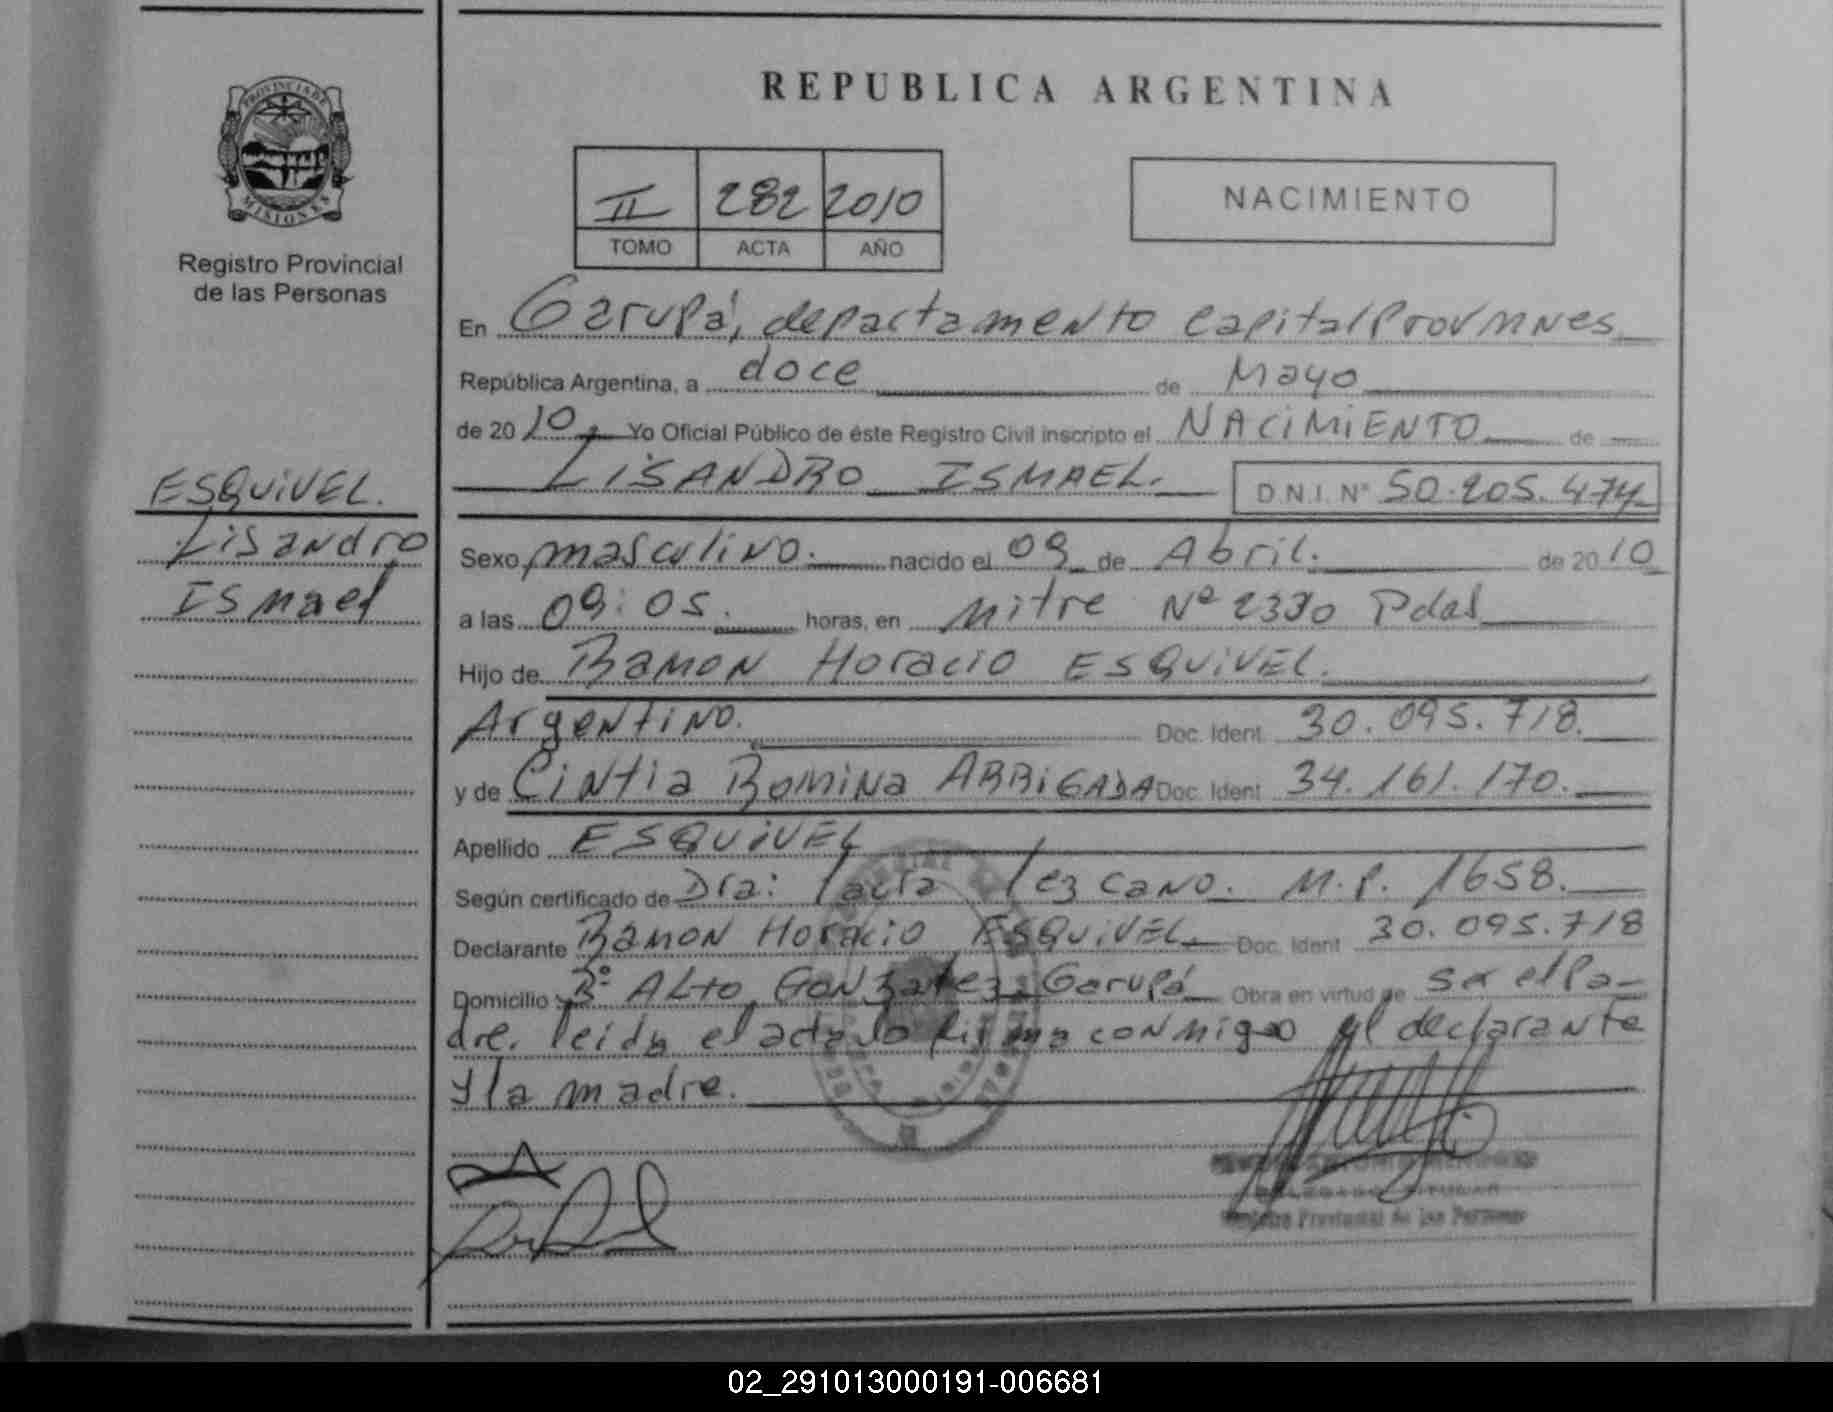 REPUBLICA ARGENTINA
PROVINCIA DE
MISIONES
Registro Provincial
de las Personas
II 282 2010
TOMO ACTA AÑO
NACIMIENTO
En Garupá, departamento capital Prov Mnes
República Argentina, a doce de Mayo
de 2010. Yo Oficial Público de éste Registro Civil inscripto el NACIMIENTO de
LISANDRO ISMAEL. D.N.I. Nº 50.205.474
ESQUIVEL.
Lisandro
Ismael
Sexo masculino. nacido el 09 de Abril. de 2010
a las 09:05. horas, en Mitre Nº 2330 Pdas
Hijo de Ramon Horacio ESQUIVEL.
Argentino. Doc. Ident 30.095.718.
y de Cintia Romina ARRIGADA Doc. Ident 34.161.170.
Apellido ESQUIVEL
Según certificado de Dra: Laura Lezcano. M.P. 1658.
Declarante Ramon Horacio ESQUIVEL Doc. Ident 30.095.718
Domicilio Bº ALto Gonzalez Garupá Obra en virtud de ser el Pa-
dre. leida el acta lo firma conmigo el declarante
y la madre.
Registro Provincial de las Personas
02_291013000191-006681